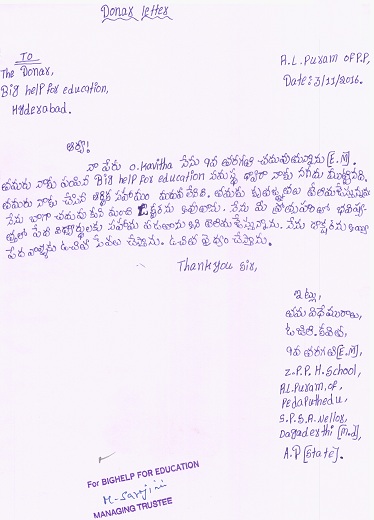 Donar letter
To
The Donar,
Big help For education,
Hyderabad.
A.L.Puram of P.P,
Date: 3/11/2016.
ఆర్యా!
నా పేరు O.Kavitha నేను 9వ తరగతి చదువుతున్నాను [E.M].
తమరు నాకు పంపిన Big help For education సంస్థ ద్వారా నాకు నగదు ముట్టినది.
తమరు నాకు చేసిన ఆర్థిక సహాయం మరువలేనిది. తమకు కృతజ్ఞతలు తెలియచేస్తున్నాను.
నేను బాగా చదువుకుని మంచి డాక్టరును అవుతాను. నేను మీ ప్రోత్సాహంతో భవిష్య-
త్తులో పేద విద్యార్థులకు సహాయ పడతానని తెలియచేస్తున్నాను. నేను డాక్టరును అయ్యి
పేద వాళ్ళకు ఉచిత సేవలు చేస్తాను. ఉచిత వైద్యం చేస్తాను.
Thankyou sir,
ఇట్లు,
తమ విధేయురాలు,
ఓ. కవిత,
9వ తరగతి [E.M],
Z.P.P.H.School,
A.L.Puram of,
Pedaputhedu,
S.P.S.R.Nellor,
Dagaderthi [M.d],
A.P [State].
For BIGHELP FOR EDUCATION
M. Sarojini
MANAGING TRUSTEE